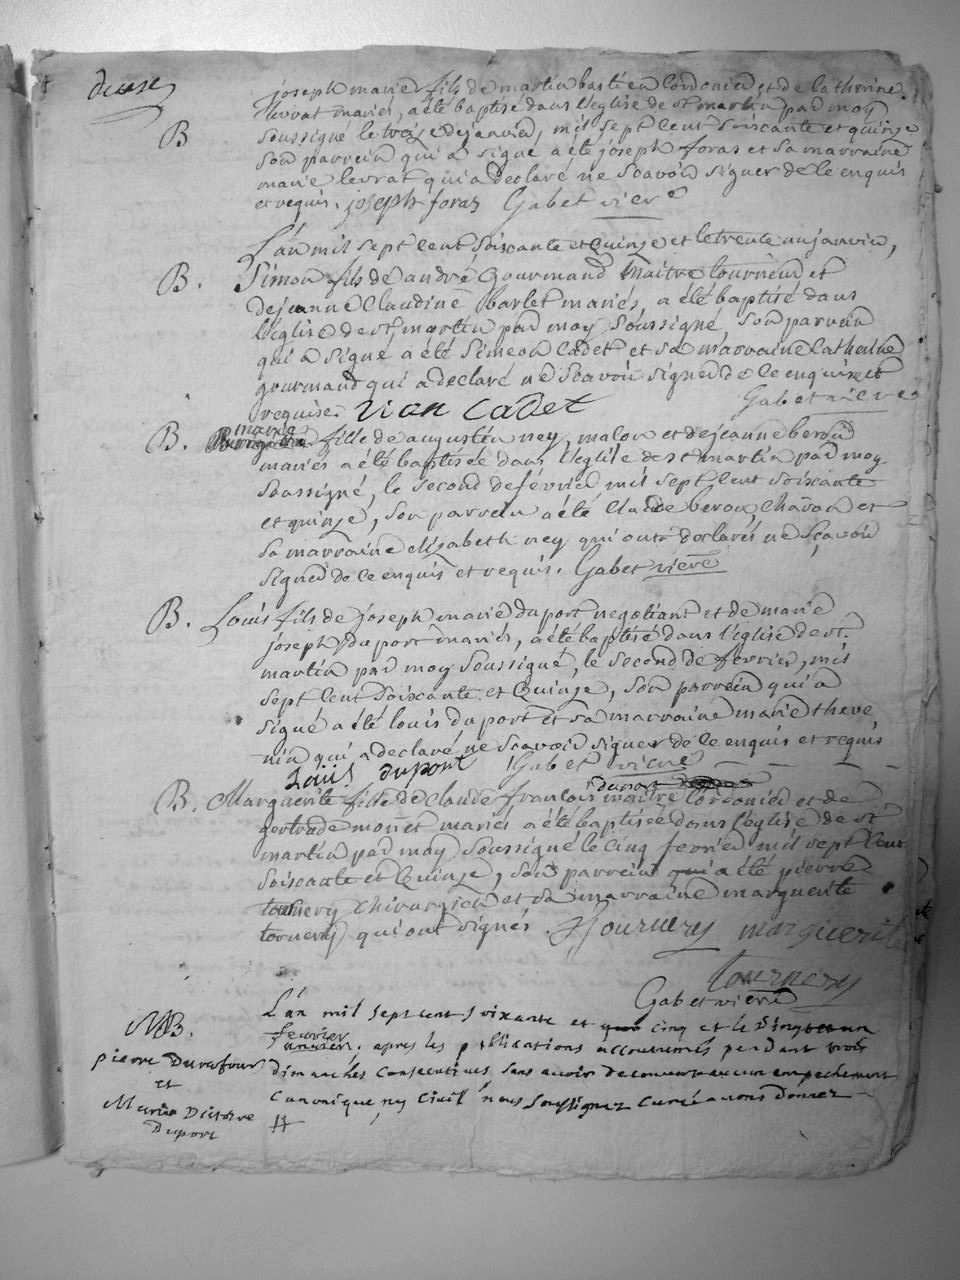 deuse
joseph marie fils de martin bastien cordonier et de catherine
levrat mariés, a été baptisé dans l'eglise de st martin par moy
B soussigné le treize dejanvier, mil sept cent soiscante et quinze
son parrein qui a signé a été joseph foras et sa marraine
marie levrat qui a déclaré ne scavoir signer de ce enquis
et requis. joseph foraz Gabet viere
L'an mil sept cent soiscante et quinze et le trente un janvier,
B. Simon fils de andré gourmand maitre tourneur et
de jeanne Claudine barlet mariés, a été baptisé dans
l'église de st martin par moy soussigné, son parrein
qui a signé a été Simeon Cadet et sa marraine Catherine
gourmand qui a declaré ne scavoir signer de ce enquise et
requise. Cadet Gabet viere
marie
B. fille de augustin ney, malon et de jeanne beroud
mariés a été baptisée dans l'eglise de st martin par moy
soussigné, le second de février mil sept cent soiscante
et quinze, son parrein a été Claude beroud, Charon et
sa marraine elizabeth ney qui ont déclarés ne scavoir
signer de ce enquis et requis. Gabet viere
B. Louis fils de joseph marie duport negotiant et de marie
joseph duport mariés, a été baptisé dans l'église de st.
martin par moy soussigné, le second de février, mil
sept cent soiscante et quinze, son parrein qui a
signé a été louis duport et sa marraine marie theve
nin qui a declaré ne scavoir signer de ce enquis et requis
Louis duport Gabet viere
B. Marguerite fille de Claude françois maitre cordonier et de
gertrude monet mariés a été baptisée dans l'église de st
martin par moy soussigné le cinq fevrier mil sept cent
soiscante et quinze, son parrein qui a été pierre
tournery chirurgien et sa marraine marguerite
tournery qui ont signés. Tournery marguerite
tournery
Gabet viere
L'an mil sept cent soixante et cinq et le vingt un
MB. fevrier
janvier. apres les publications accoutumés pendant trois
pierre Durafour dimanches consecutives sans avoir decouvert aucun empechement
et canonique ny civil nous soussignez curé avons donnez
Marie Victoire
Duport